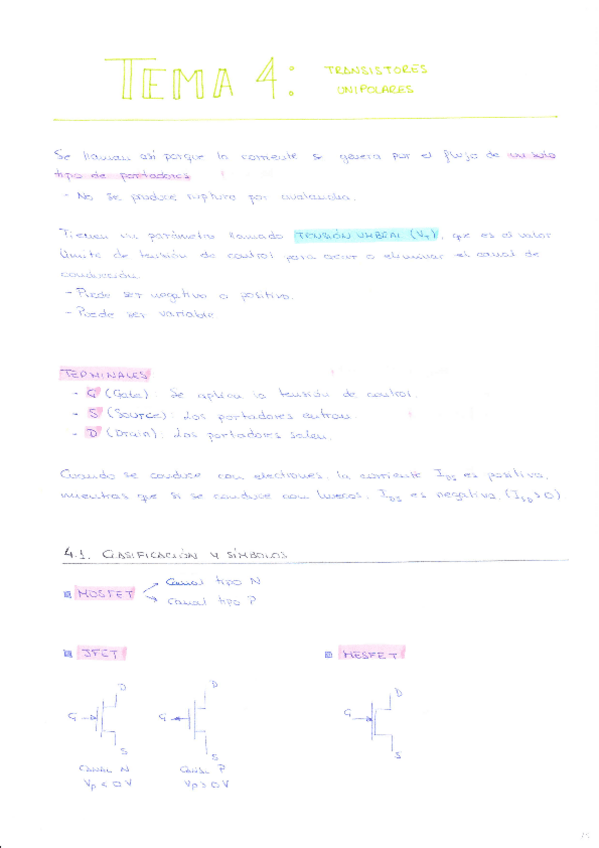 TEMA 4: TRANSISTORES
UNIPOLARES
Se llaman así porque la corriente se genera por el flujo de un solo
tipo de portadores
- No se produce ruptura por avalancha.
Tienen un parámetro llamado TENSIÓN UMBRAL (VT), que es el valor
límite de tensión de control para crear o eliminar el canal de
conducción.
- Puede ser negativo o positivo.
- Puede ser variable
TERMINALES
- G (Gate): Se aplica la tensión de control.
- S (Source): Los portadores entran.
- D (Drain): Los portadores salen.
Cuando se conduce con electrones, la corriente IDS es positiva,
mientras que si se conduce con huecos, IDS es negativa. (ISD > 0)
4.1. CLASIFICACIÓN Y SÍMBOLOS
MOSFET
Canal tipo N
Canal tipo P
JFET
MESFET
D
G
S
D
G
S
D
G
S
CANAL N
VP < 0 V
CANAL P
VP > 0 V